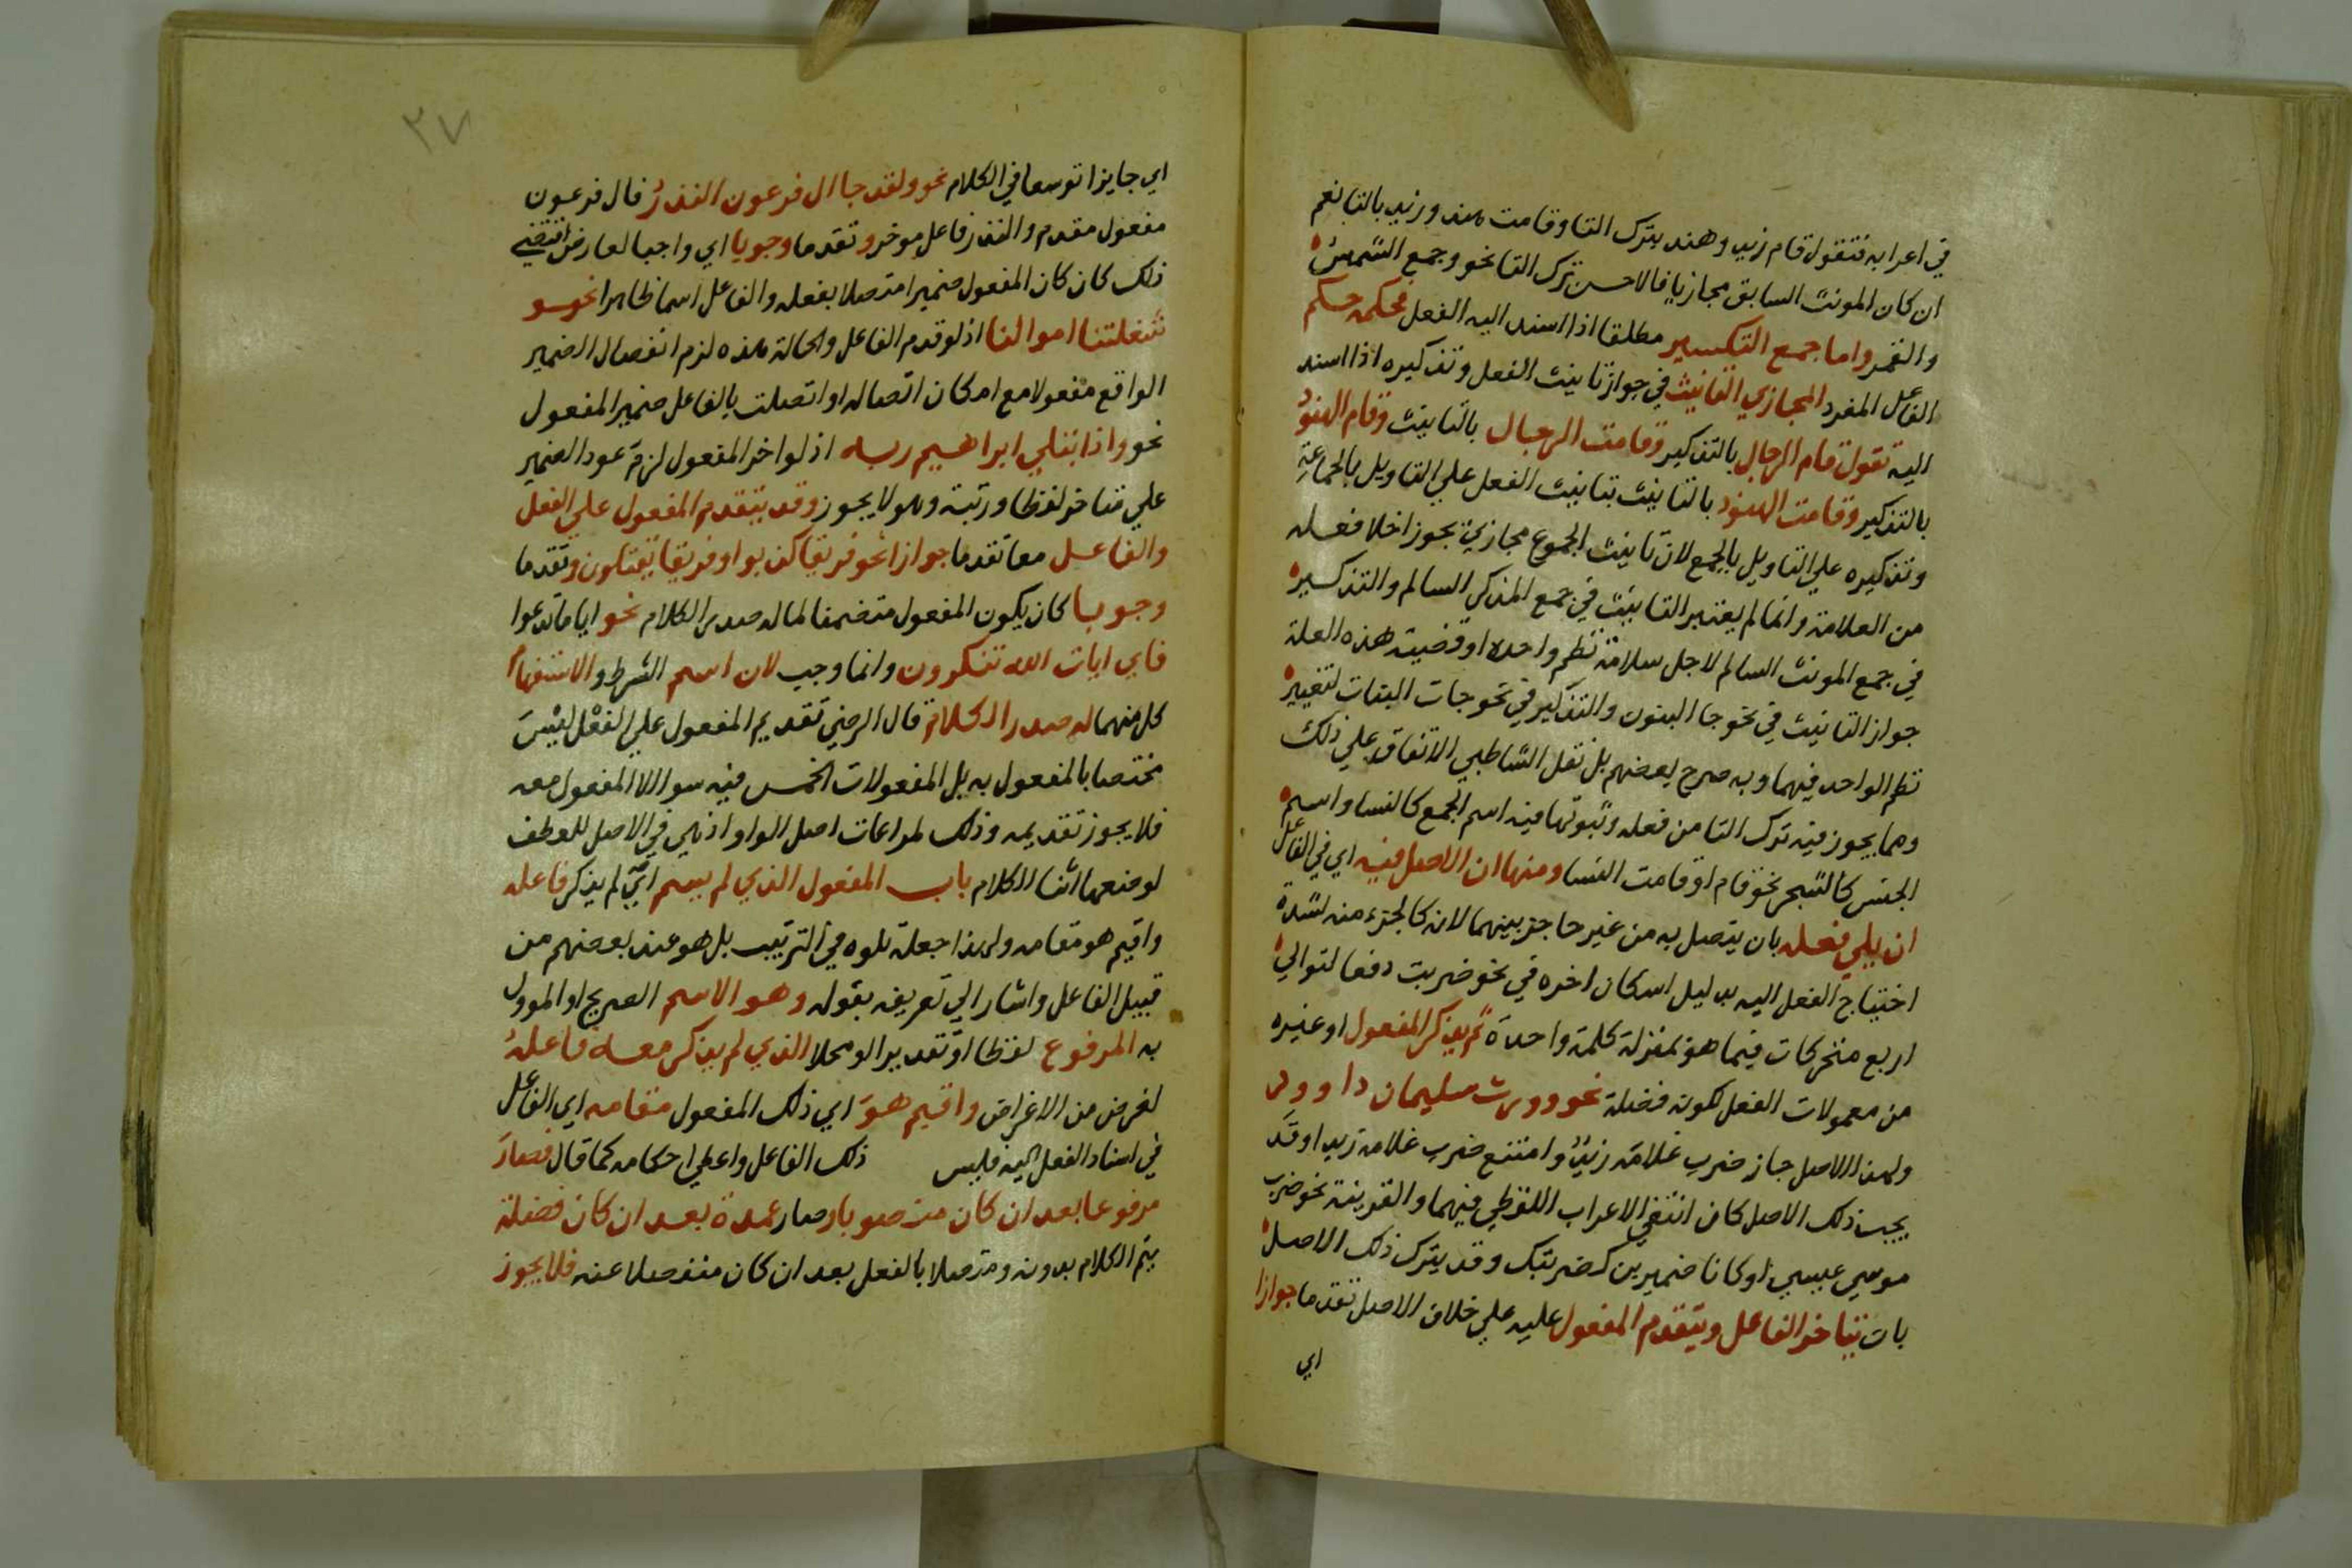 في اعرابه فتقول قام زيد وهند بترك التا وقامت هند وزيد بالتا نعم
ان كان المونث السابق مجازيا فالاحسن ترك التا نحو وجمع الشمس
والقمر واما جمع التكسير مطلقا اذا اسند اليه الفعل فحكمه حكم
الفاعل المفرد المجازي التانيث في جواز تانيث الفعل وتذكيره اذا اسند
اليه تقول قام الرجال بالتذكير وقامت الرجال بالتانيث وقام الهنود
بالتذكير وقامت الهنود بالتانيث بتانيث الفعل علي التاويل بالجماعة
وتذكيره علي التاويل بالجمع لان تانيث الجموع مجازي يجوز اخلا فعله
من العلامة وانما لم يعتبر التانيث في جمع المذكر السالم والتذكير
في جمع المونث السالم لاجل سلامة نظم واحده او قضيت هذه العلة
جواز التانيث في نحو جا البنون والتذكير في نحو جات البنات لتغيير
نظم الواحد فيهما وبه صرح بعضهم بل نقل الشاطبي الاتفاق علي ذلك
ومما يجوز فيه ترك التا من فعله وثبوتها فيه اسم الجمع كالنسا واسم
الجنس كالشجر نحو قام او قامت النسا ومنها ان الاصل فيه اي في الفاعل
ان يلي فعله بان يتصل به من غير حاجز بينهما لانه كالجزء منه لشدة
احتياج الفعل اليه بدليل اسكان اخره في نحو ضربت دفعا لتوالي
اربع متحركات فيما هو بمنزلة كلمة واحدة ثم يذكر المفعول او غيره
من معمولات الفعل لكونه فضلة نحو وورث سليمان داوود
ولهذا الاصل جاز ضرب غلامه زيد وامتنع ضرب غلامه زيدا وقد
يجب ذلك الاصل كان انتفي الاعراب اللفظي فيهما والقرينة نحو ضرب
موسي عيسي او كانا ضميرين كضربتك وقد يترك ذلك الاصل
بات يتاخر الفاعل ويتقدم المفعول عليه علي خلاف الاصل تقدما جوازا
اي
٣٧
اي جايزا توسعا في الكلام نحو ولقد جا ال فرعون النذر فال فرعون
مفعول مقدم والنذر فاعل موخر وتقدما وجوبا اي واجبا لعارض اقتضي
ذلك كان كان المفعول ضميرا متصلا بفعله والفاعل اسما ظاهرا نحو
شغلتنا اموالنا اذ لو قدم الفاعل والحالة هذه لزم انفصال الضمير
الواقع مفعولا مع امكان اتصاله او اتصلت بالفاعل ضمير المفعول
نحو واذ ابتلي ابراهيم ربه اذ لو اخر المفعول لزم عود الضمير
علي متاخر لفظا ورتبة وهو لا يجوز وقد يتقدم المفعول علي الفعل
والفاعل معا تقدما جوازا نحو فريقا كذبوا وفريقا يقتلون وتقدما
وجوبا كان يكون المفعول متضمنا لما له صدر الكلام نحو ايا ما تدعوا
فاي ايات الله تنكرون وانما وجب لان اسم الشرط والاستفهام
كل منهما له صدر الكلام قال الرضي تقديم المفعول علي الفعل ليس
مختصا بالمفعول به بل المفعولات الخمس فيه سوا الا المفعول معه
فلا يجوز تقديمه وذلك لمراعات اصل الواو اذ هي في الاصل للعطف
لوضعها اثنا الكلام باب المفعول الذي لم يسم اي لم يذكر فاعله
واقيم هو مقامه ولهذا جعله تلوه في الترتيب بل هو عند بعضهم من
قبيل الفاعل واشار الي تعريفه بقوله وهو الاسم الصريح او الموول
به المرفوع لفظا او تقديرا او محلا الذي لم يذكر معه فاعله
لغرض من الاغراض واقيم هو اي ذلك المفعول مقامه اي الفاعل
في اسناد الفعل اليه فلبس ذلك الفاعل واعطي احكامه كما قال فصار
مرفوعا بعد ان كان منصوبا وصار عمدة بعد ان كان فضلة
يتم الكلام بدونه ومتصلا بالفعل بعد ان كان منفصلا عنه فلا يجوز